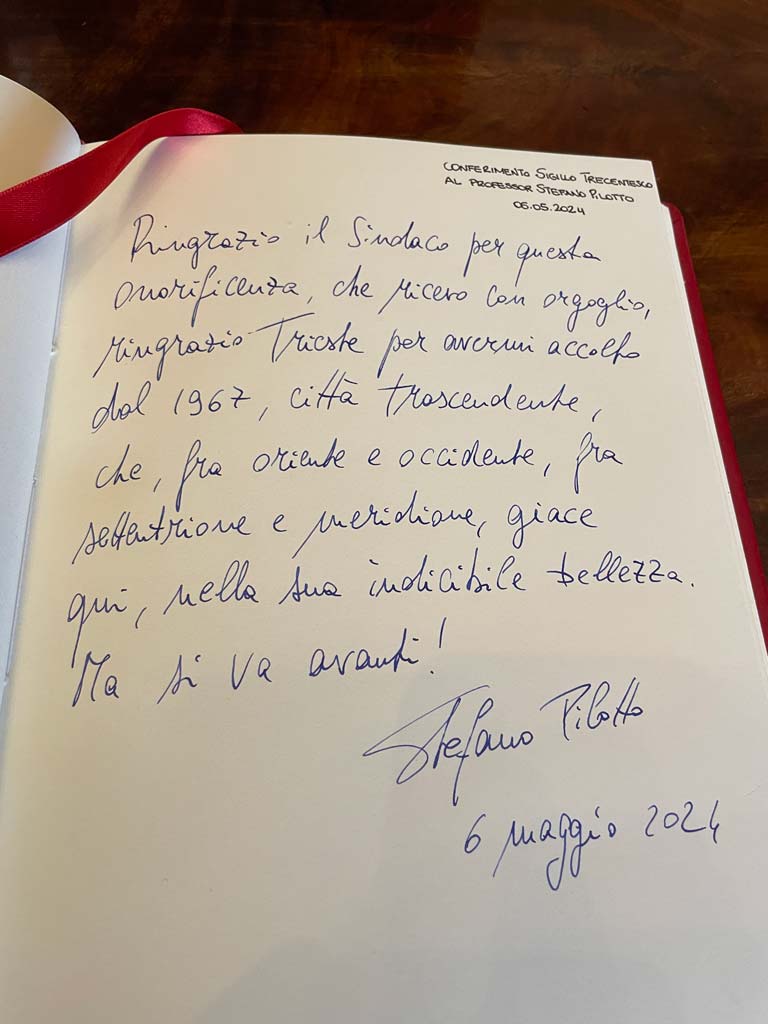 CONFERIMENTO SIGILLO TRECENTESCO
AL PROFESSOR STEFANO PILOTTO
06.05.2024
Ringrazio il Sindaco per questa
onorificenza, che ricevo con orgoglio,
ringrazio Trieste per avermi accolto
dal 1967, città trascendente,
che, fra oriente e occidente, fra
settentrione e meridione, giace
qui, nella sua indicibile bellezza.
Ma si va avanti!
Stefano Pilotto
6 maggio 2024